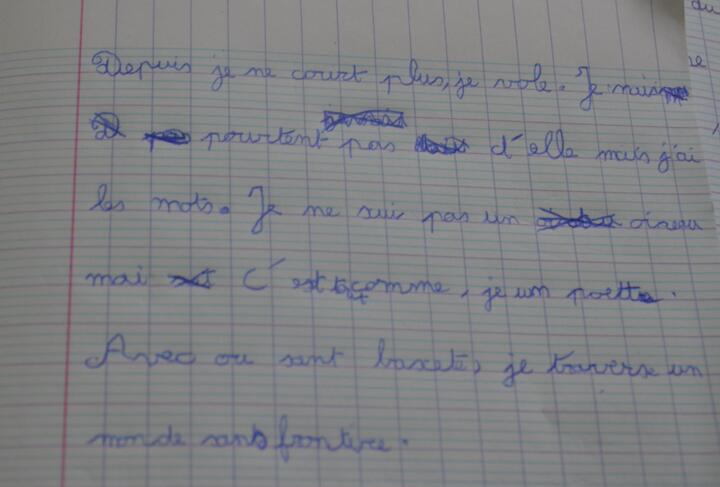 Depuis je ne court plus, je vole. Je
pourtent pas d'elle mais j'ai
les mots. Je ne suis pas un oiseau
mai C'est comme, je un poette.
Avec ou sant baskets, je traverse un
monde sans frontire.